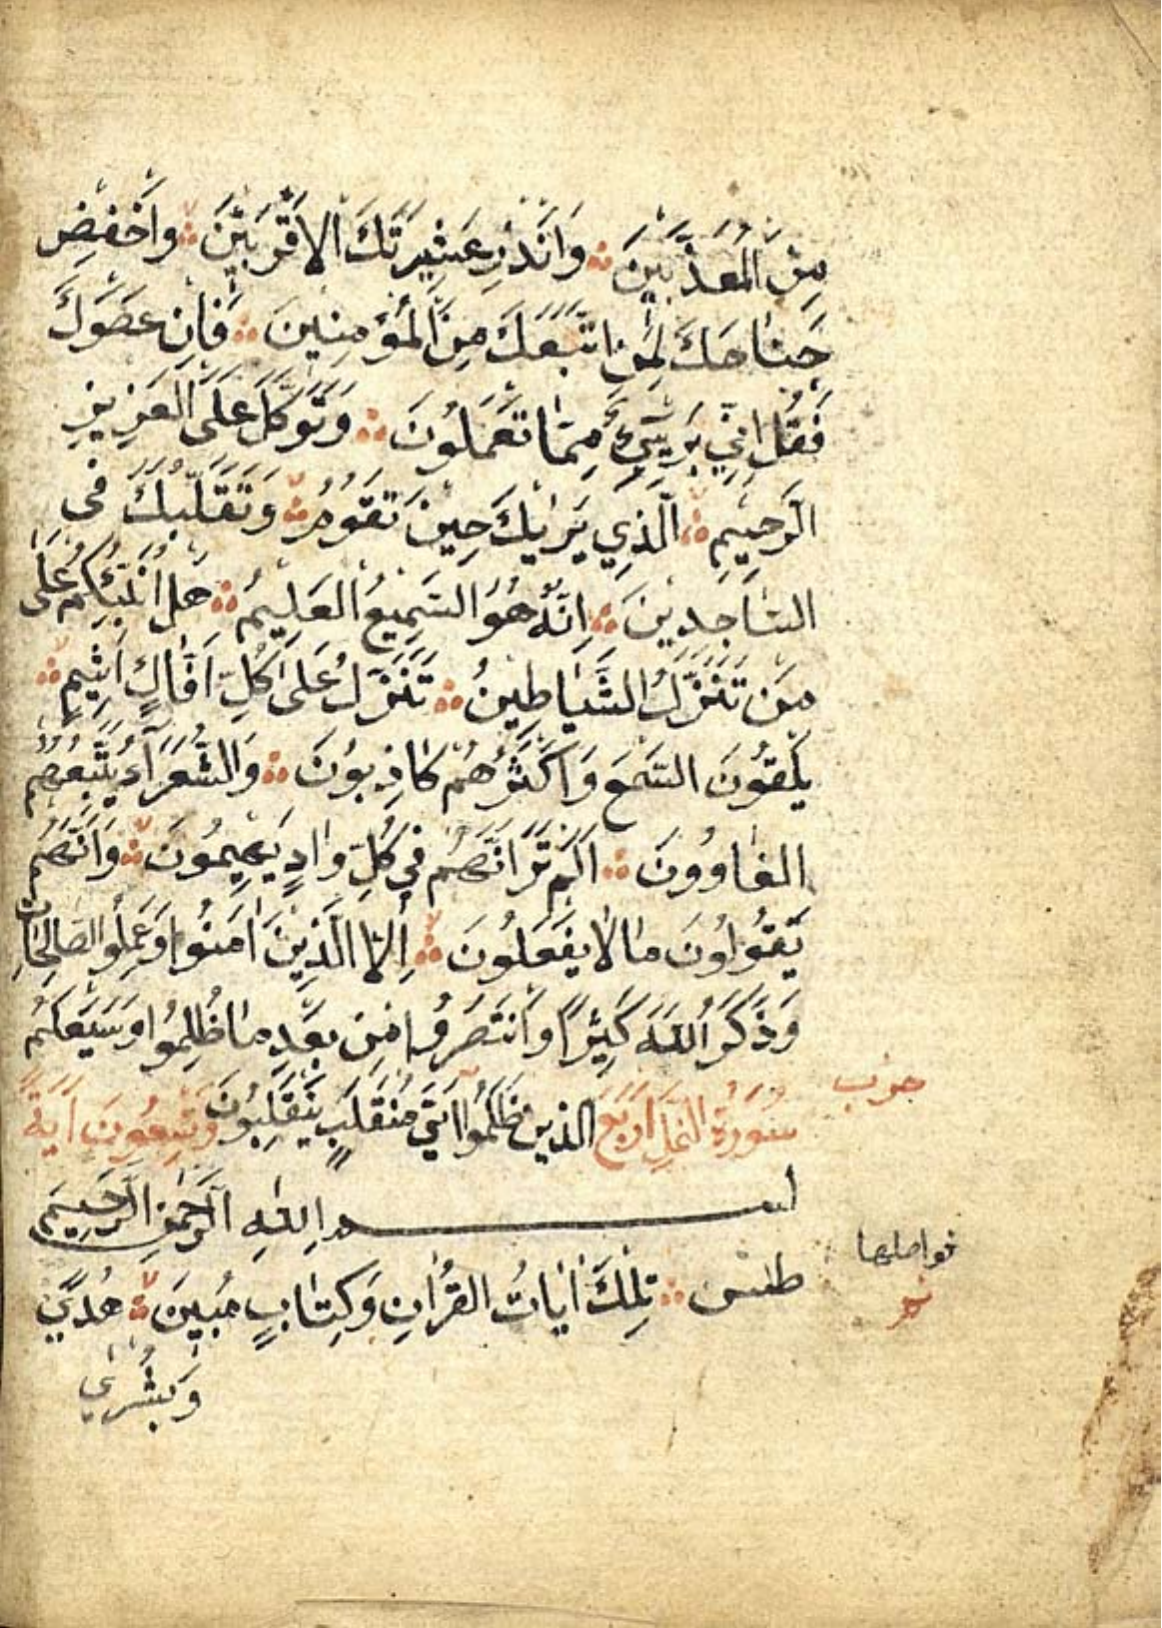 مِنَ الْمُعَذَّبِينَ ؞ وَاَنْذِرْ عَشِيرَتَكَ الْاَقْرَبِينَ ؞ وَاخْفِضْ
جَنَاحَكَ لِمَنِ اتَّبَعَكَ مِنَ الْمُؤْمِنِينَ ؞ فَاِنْ عَصَوْكَ
فَقُلْ اِنِّي بَرِيءٌ مِمَّا تَعْمَلُونَ ؞ وَتَوَكَّلْ عَلَى الْعَزِيزِ
الرَّحِيمِ ؞ اَلَّذِي يَرٰيكَ حِينَ تَقُومُ ؞ وَتَقَلُّبَكَ فِى
السَّاجِدِينَ ؞ اِنَّهُ هُوَ السَّمِيعُ الْعَلِيمُ ؞ هَلْ اُنَبِّئُكُمْ عَلَى
مَنْ تَنَزَّلُ الشَّيَاطِينُ ؞ تَنَزَّلُ عَلَى كُلِّ اَفَّاكٍ اَثِيمٍ ؞
يُلْقُونَ السَّمْعَ وَاَكْثَرُهُمْ كَاذِبُونَ ؞ وَالشُّعَرَاءُ يَتَّبِعُهُمُ
الْغَاوُونَ ؞ اَلَمْ تَرَ اَنَّهُمْ فِي كُلِّ وَادٍ يَهِيمُونَ ؞ وَاَنَّهُمْ
يَقُولُونَ مَا لَا يَفْعَلُونَ ؞ اِلَّا الَّذِينَ اٰمَنُوا وَعَمِلُوا الصَّالِحَاتِ
وَذَكَرُوا اللّٰهَ كَثِيرًا وَانْتَصَرُوا مِنْ بَعْدِ مَا ظُلِمُوا وَسَيَعْلَمُ
حزب
سُورَةُ النَّمْلِ اَرْبَعَ الَّذِينَ ظَلَمُوا اَيَّ مُنْقَلَبٍ يَنْقَلِبُونَ وَتِسْعُونَ اٰيَةً
بســـــــم اللّٰهِ الرَّحْمٰنِ الرَّحِيمِ
فواصلها
طٰس ؞ تِلْكَ اٰيَاتُ الْقُرْاٰنِ وَكِتَابٍ مُبِينٍ ؞ هُدًى
وَبُشْرٰى